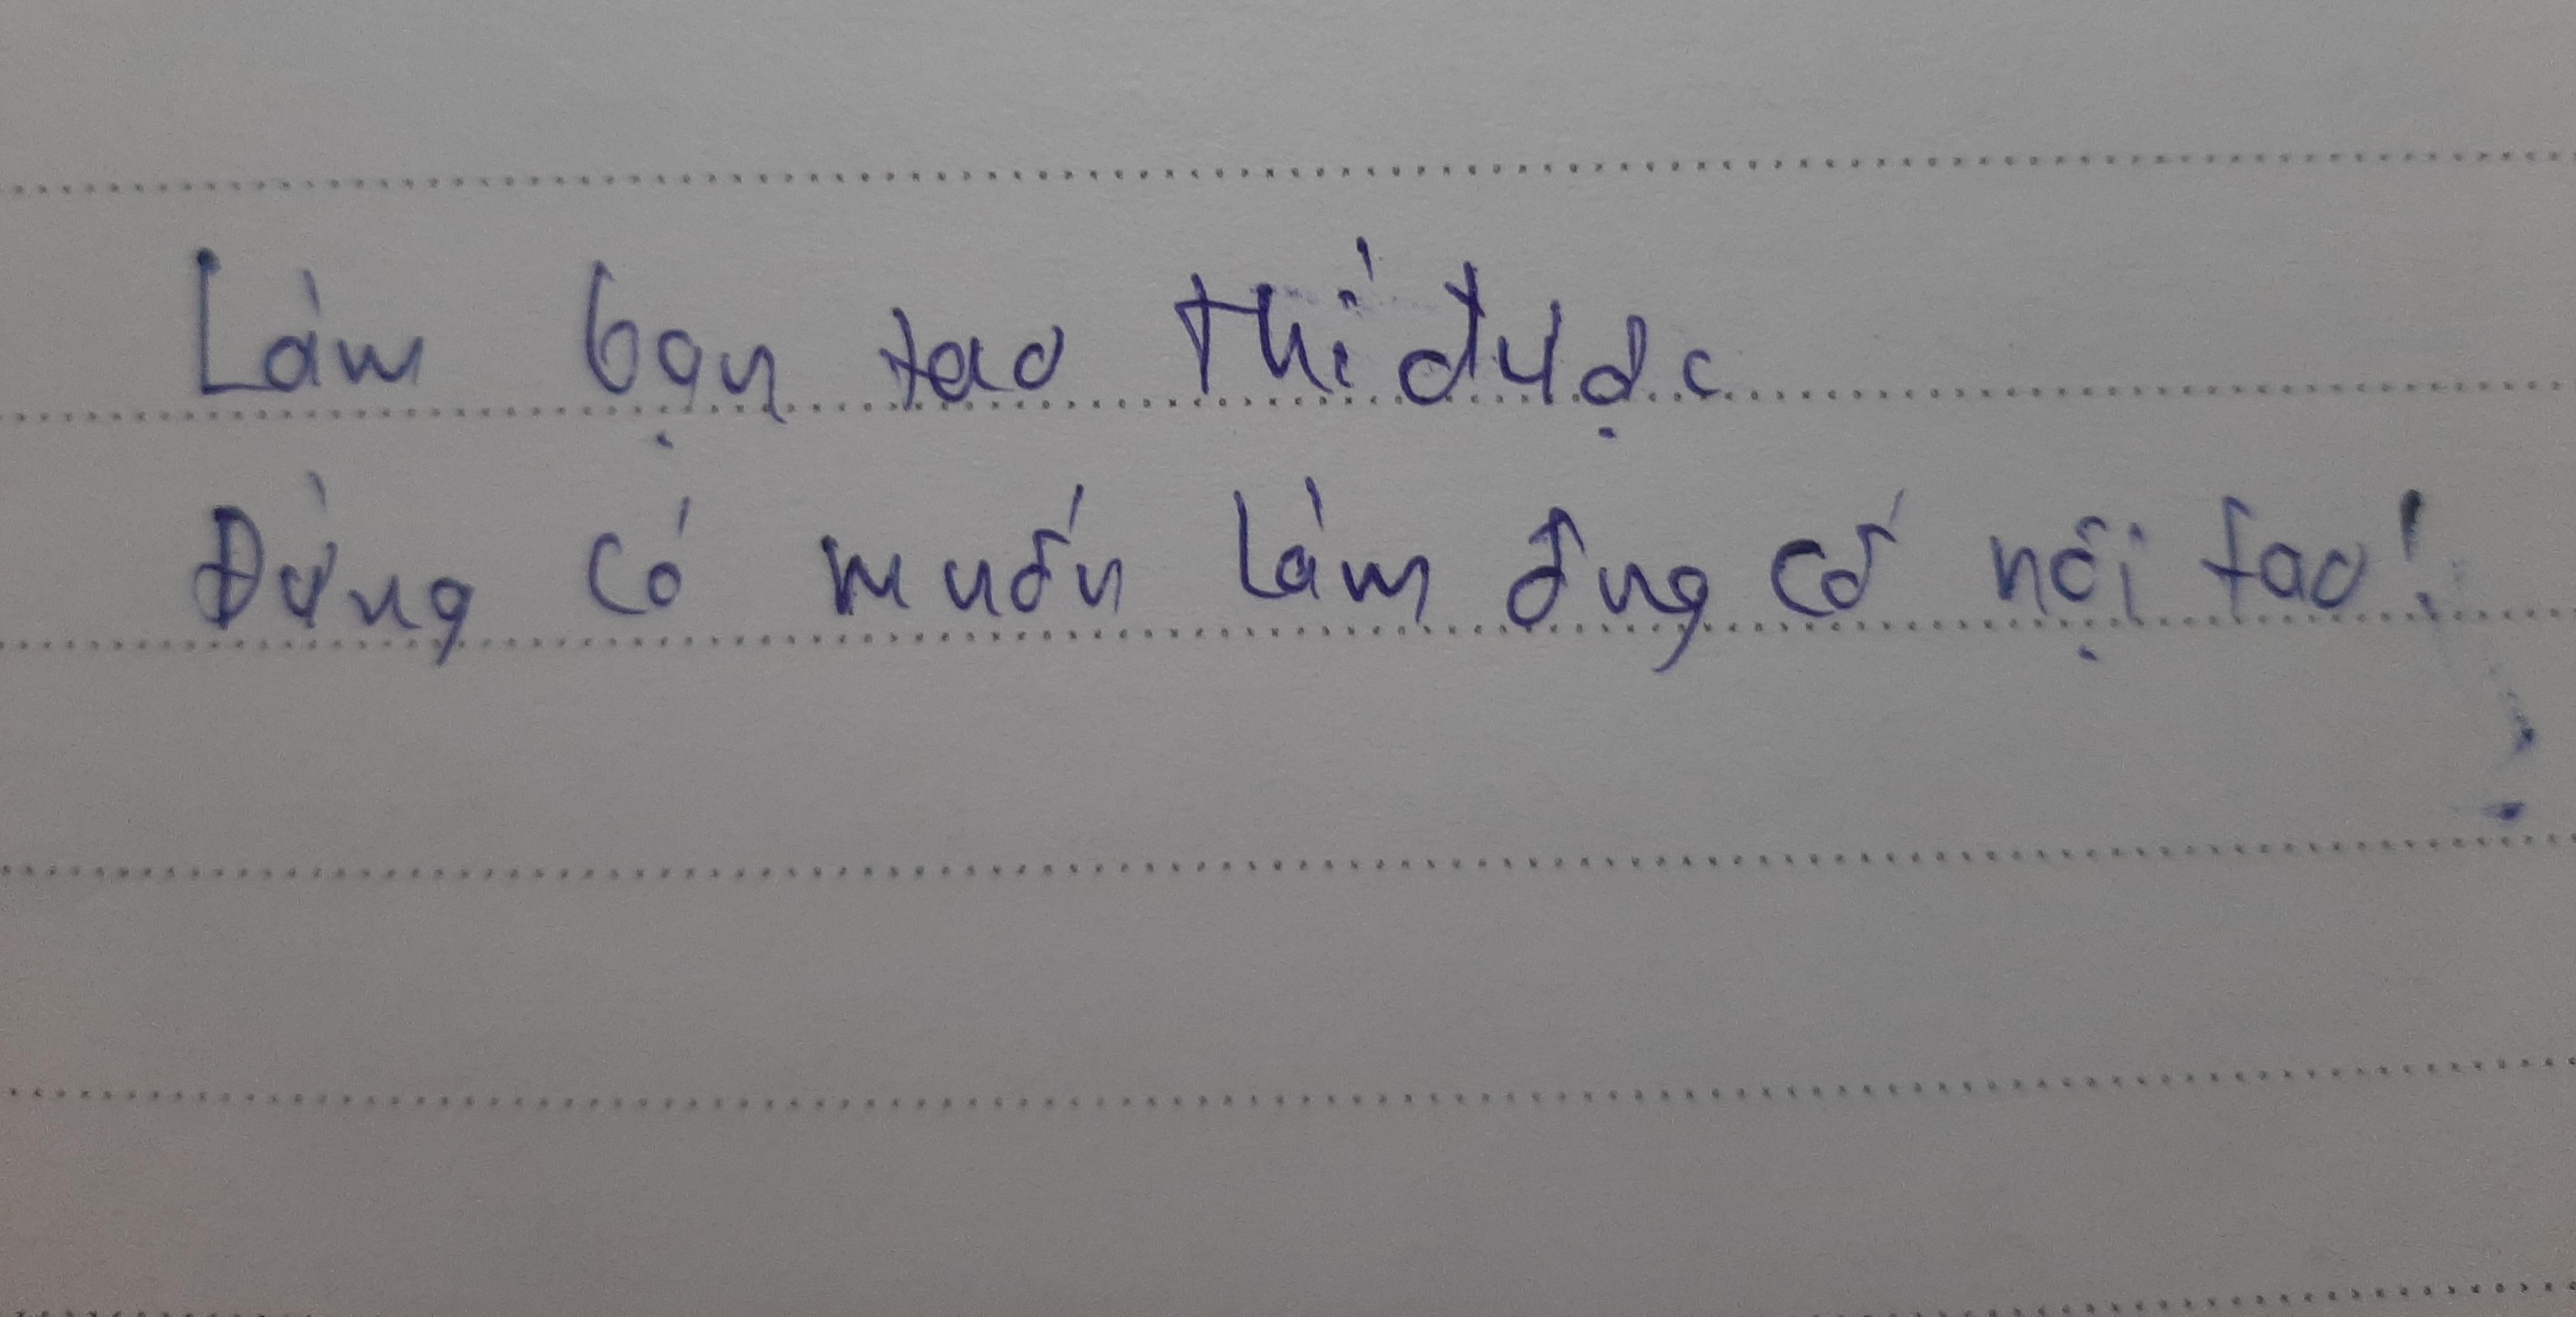 Làm bạn tao thì được
Đừng có muốn làm ông cố nội tao!